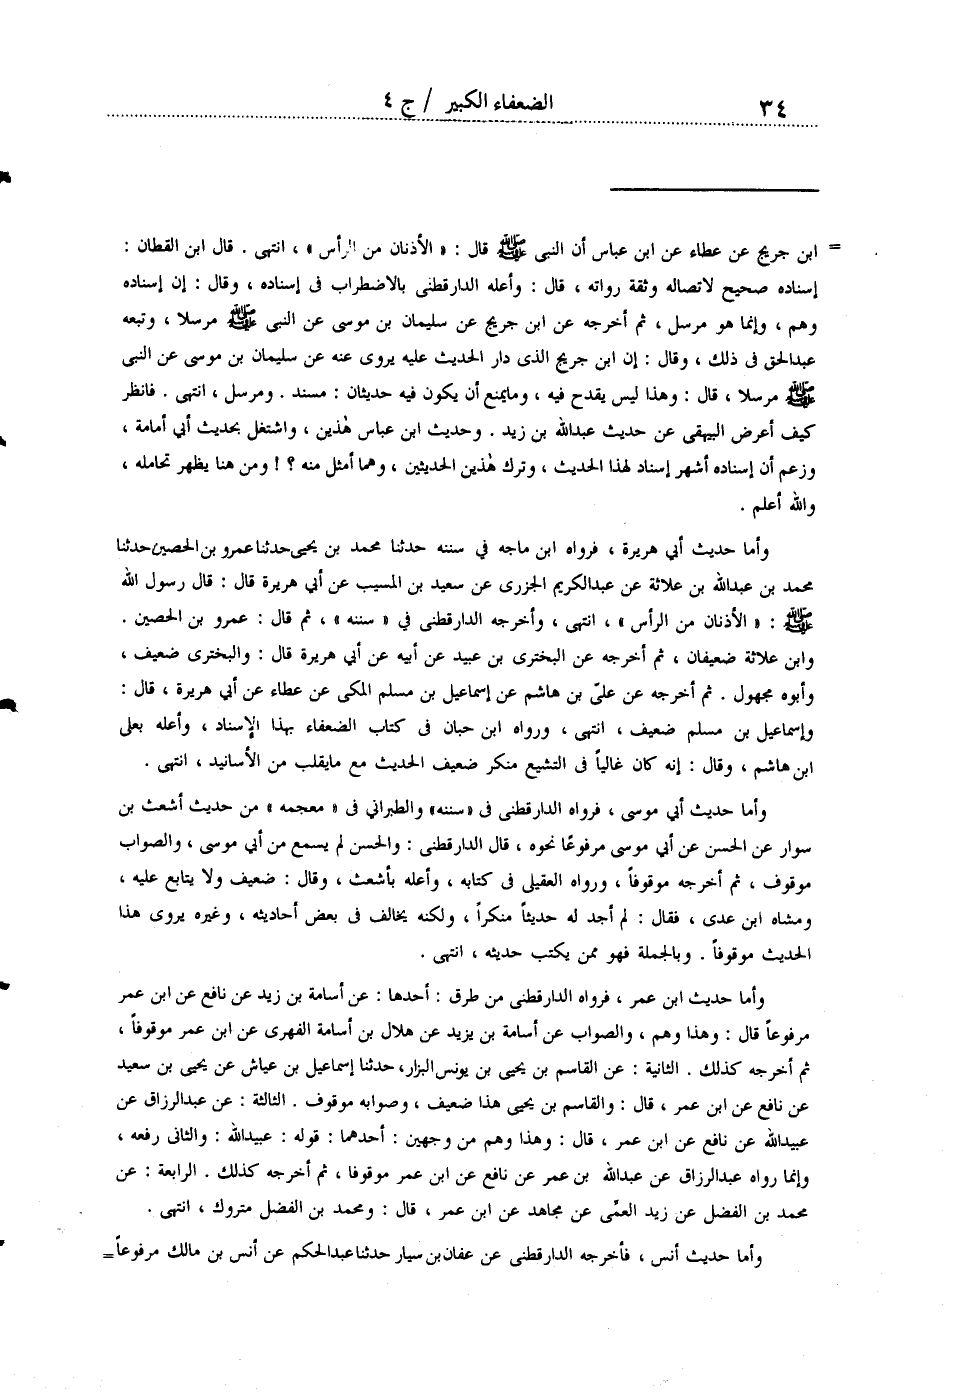 ٣٤
الضعفاء الكبير / ج ٤
= ابن جريج عن عطاء عن ابن عباس أن النبي ﷺ قال : « الأذنان من الرأس » ، انتهى . قال ابن القطان :
إسناده صحيح لاتصاله وثقة رواته ، قال : وأعله الدارقطنى بالاضطراب فى إسناده ، وقال : إن إسناده
وهم ، وإنما هو مرسل ، ثم أخرجه عن ابن جريج عن سليمان بن موسى عن النبى ﷺ مرسلا ، وتبعه
عبدالحق فى ذلك ، وقال : إن ابن جريج الذى دار الحديث عليه يروى عنه عن سليمان بن موسى عن النبى
ﷺ مرسلا ، قال : وهذا ليس يقدح فيه ، ومايمنع أن يكون فيه حديثان : مسند . ومرسل ، انتهى . فانظر
كيف أعرض البيهقى عن حديث عبدالله بن زيد . وحديث ابن عباس هٰذين ، واشتغل بحديث أبي أمامة ،
وزعم أن إسناده أشهر إسناد لهذا الحديث ، وترك هٰذين الحديثين ، وهما أمثل منه ؟ ! ومن هنا يظهر تحامله ،
والله أعلم .
وأما حديث أبي هريرة ، فرواه ابن ماجه في سننه حدثنا محمد بن يحيى حدثنا عمرو بن الحصين حدثنا
محمد بن عبدالله بن علاثة عن عبدالكريم الجزرى عن سعيد بن المسيب عن أبي هريرة قال : قال رسول الله
ﷺ : « الأذنان من الرأس » ، انتهى ، وأخرجه الدارقطنى في « سننه » ، ثم قال : عمرو بن الحصين .
وابن علاثة ضعيفان ، ثم أخرجه عن البخترى بن عبيد عن أبيه عن أبي هريرة قال : والبخترى ضعيف ،
وأبوه مجهول . ثم أخرجه عن علىّ بن هاشم عن إسماعيل بن مسلم المكى عن عطاء عن أبي هريرة ، قال :
وإسماعيل بن مسلم ضعيف ، انتهى ، ورواه ابن حبان فى كتاب الضعفاء بهذا الإسناد ، وأعله بعلى
ابن هاشم ، وقال : إنه كان غالياً فى التشيع منكر ضعيف الحديث مع مايقلب من الأسانيد ، انتهى .
وأما حديث أبي موسى ، فرواه الدارقطنى فى «سننه» والطبراني فى « معجمه » من حديث أشعث بن
سوار عن الحسن عن أبي موسى مرفوعًا نحوه ، قال الدارقطنى : والحسن لم يسمع من أبي موسى ، والصواب
موقوف ، ثم أخرجه موقوفاً ، ورواه العقيلى فى كتابه ، وأعله بأشعث ، وقال : ضعيف ولا يتابع عليه ،
ومشاه ابن عدى ، فقال : لم أجد له حديثاً منكراً ، ولكنه يخالف فى بعض أحاديثه ، وغيره يروى هذا
الحديث موقوفاً . وبالجملة فهو ممن يكتب حديثه ، انتهى .
وأما حديث ابن عمر ، فرواه الدارقطنى من طرق : أحدها : عن أسامة بن زيد عن نافع عن ابن عمر
مرفوعاً قال : وهذا وهم ، والصواب عن أسامة بن يزيد عن هلال بن أسامة الفهرى عن ابن عمر موقوفاً ،
ثم أخرجه كذلك . الثانية : عن القاسم بن يحيى بن يونس البزار، حدثنا إسماعيل بن عياش عن يحيى بن سعيد
عن نافع عن ابن عمر ، قال : والقاسم بن يحيى هذا ضعيف ، وصوابه موقوف . الثالثة : عن عبدالرزاق عن
عبيدالله عن نافع عن ابن عمر ، قال : وهذا وهم من وجهين : أحدهما : قوله : عبيدالله : والثانى رفعه ،
وإنما رواه عبدالرزاق عن عبدالله بن عمر عن نافع عن ابن عمر موقوفا ، ثم أخرجه كذلك . الرابعة : عن
محمد بن الفضل عن زيد العمِّى عن مجاهد عن ابن عمر ، قال : ومحمد بن الفضل متروك ، انتهى .
وأما حديث أنس ، فأخرجه الدارقطنى عن عفان بن سيار حدثنا عبدالحكم عن أنس بن مالك مرفوعاً =